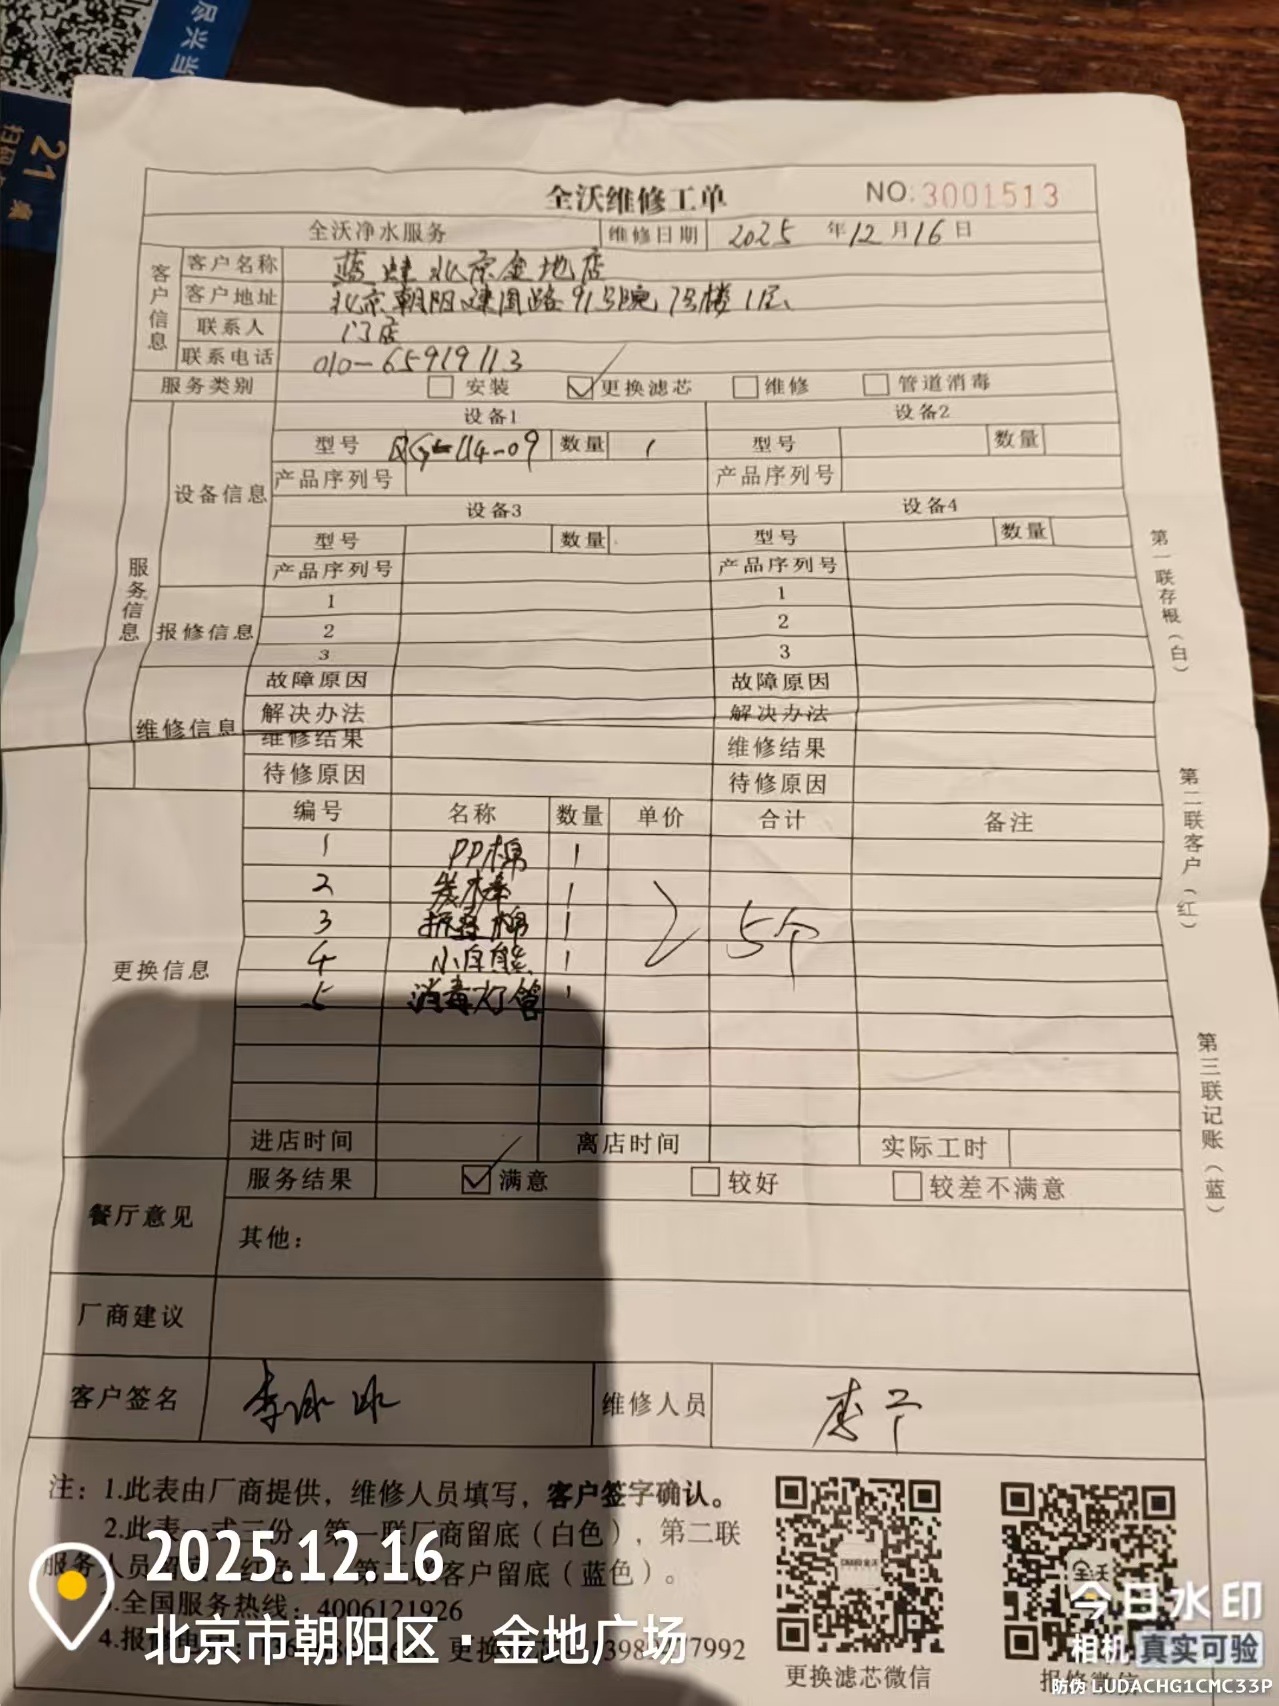 21
全沃维修工单 NO:3001513
全沃净水服务 维修日期 2025 年 12 月 16 日
客户信息
客户名称 蓝蛙北京金地店
客户地址 北京朝阳建国路91号院7号楼1层
联系人 门店
联系电话 010-65919113
服务类别 安装 更换滤芯 维修 管道消毒
服务信息
设备信息
设备1 设备2
型号 数量 1 型号 数量
产品序列号 产品序列号
设备3 设备4
型号 数量 型号 数量
产品序列号 产品序列号
报修信息
1 1
2 2
3 3
维修信息
故障原因 故障原因
解决办法 解决办法
维修结果 维修结果
待修原因 待修原因
更换信息
编号 名称 数量 单价 合计 备注
1 PP棉 1
2 炭棒 1
3 折叠棉 1 5个
4 小白熊 1
5 消毒灯管 1
进店时间 离店时间 实际工时
餐厅意见
服务结果 满意 较好 较差不满意
其他：
厂商建议
客户签名 维修人员
注：1.此表由厂商提供，维修人员填写，客户签字确认。
2.此表一式三份，第一联厂商留底（白色），第二联
服务人员留底（红色），第三联客户留底（蓝色）。
3.全国服务热线：4006121926
4.报修电话： 更换滤芯
7992
更换滤芯微信
报修微信
第一联存根（白）
第二联客户（红）
第三联记账（蓝）
2025.12.16
北京市朝阳区·金地广场
今日水印
相机 真实可验
防伪 LUDACHG1CMC33P